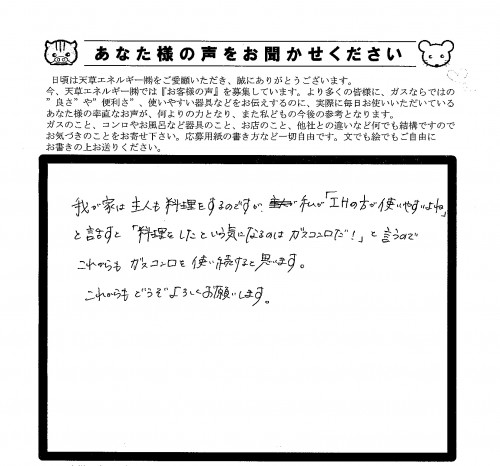 あなた様の声をお聞かせください
日頃は天草エネルギー㈱をご愛顧いただき、誠にありがとうございます。
今、天草エネルギー㈱では『お客様の声』を募集しています。より多くの皆様に、ガスならではの
”良さ”や”便利さ”、使いやすい器具などをお伝えするのに、実際に毎日お使いいただいている
あなた様の率直なお声が、何よりの力となり、また私どもの今後の参考となります。
ガスのこと、コンロやお風呂など器具のこと、お店のこと、他社との違いなど何でも結構ですので
お気づきのことをお寄せ下さい。応募用紙の書き方など一切自由です。文でも絵でもご自由に
お書きの上お送りください。
我が家は主人も料理をするのですが、私が「IHの方が使いやすいよね」
と話すと「料理をしたという気になるのはガスコンロだ!」と言うので
これからもガスコンロを使い続けると思います。
これからもどうぞよろしくお願いします。